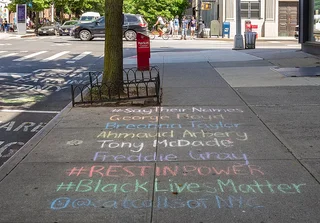 #SayTheirNames
George Floyd
Breonna Taylor
Ahmaud Arbery
Tony McDade
Freddie Gray
#RESTINPOWER
#BlackLivesMatter
@catcallsofNYC